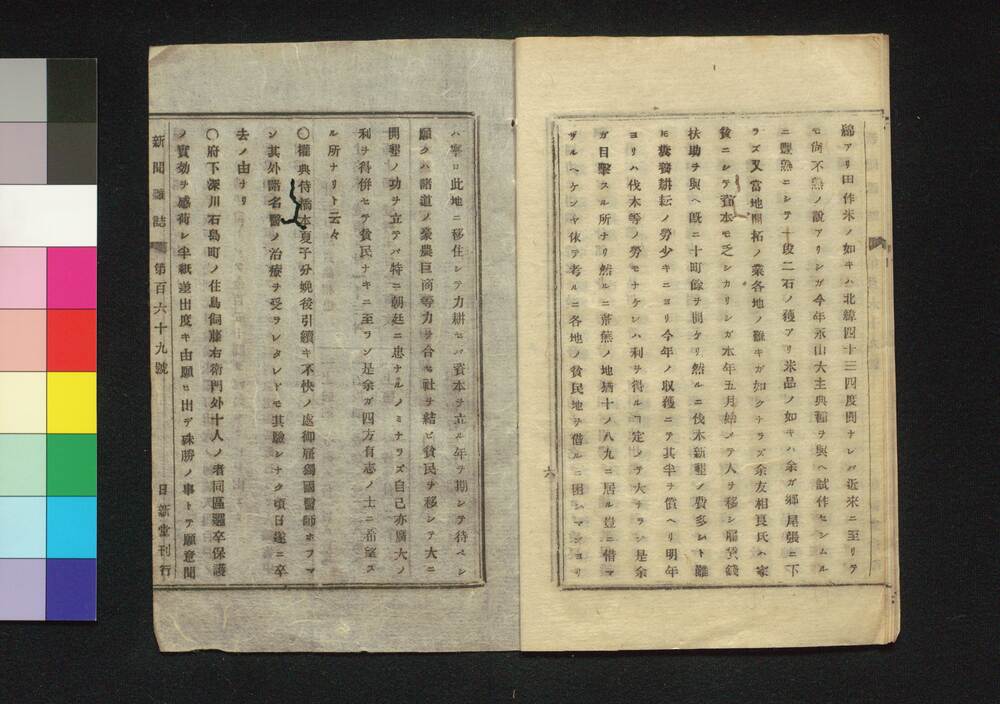 綿アリ田作米ノ如キハ北緯四十三四度間ナレバ近来ニ至リテ
モ尚不熟ノ説アリシガ今年永山大主典種ヲ與ヘ試作セシムル
ニ豐熟ニシテ一段二石ノ穫アリ米品ノ如キハ余ガ郷尾張ニ下
ラズ又當地開拓ノ業各地ノ難キガ如クナラズ余友相良氏ハ家
貧ニシテ資本モ乏シカリシガ本年五月始メテ人ヲ移シ雇貸錢
扶助ヲ與ヘ既ニ十町餘ヲ開ケリ然ルニ伐木新墾ノ費多シト雖
モ糞養耕耘ノ勞少キニヨリ今年ノ収穫ニテ其半ヲ償ヘリ明年
ヨリハ伐木等ノ勞モナケレハ利ヲ得ルヿ定メテ大ナラン是余
ガ目擊スル所ナリ然ルニ荒蕪ノ地猶十ノ八九ニ居ル豈ニ惜マ
ザルベケンヤ依テ考ルニ各地ノ貧民地ヲ借ルニ困シマンヨリ
六
ハ寧ロ此地ニ移住シテ力耕セバ資本ヲ立ル年ヲ期シテ待ベシ
願クハ諸道ノ豪農巨商等力ヲ合セ社ヲ結ビ貧民ヲ移シテ大ニ
開墾ノ功ヲ立テバ特ニ朝廷ニ忠ナルノミナラズ自己亦廣大ノ
利ヲ得併セテ貧民ナキニ至ラン是余ガ四方有志ノ士ニ希望ス
ル所ナリト云々
〇權典侍橋本夏子分娩後引續キ不快ノ處御雇獨國醫師ホフマ
ン其外諸名醫ノ治療ヲ受ラレタレドモ其驗シナク頃日遂ニ卒
去ノ由ナリ
〇府下深川石島町ノ住鳥飼藤右衛門外十人ノ者同區邏卒保護
ノ實効ヲ感荷シ半紙差出度キ由願ヒ出デ殊勝ノ事トテ願意聞
新聞雜誌 第百六十九號 日新堂刊行